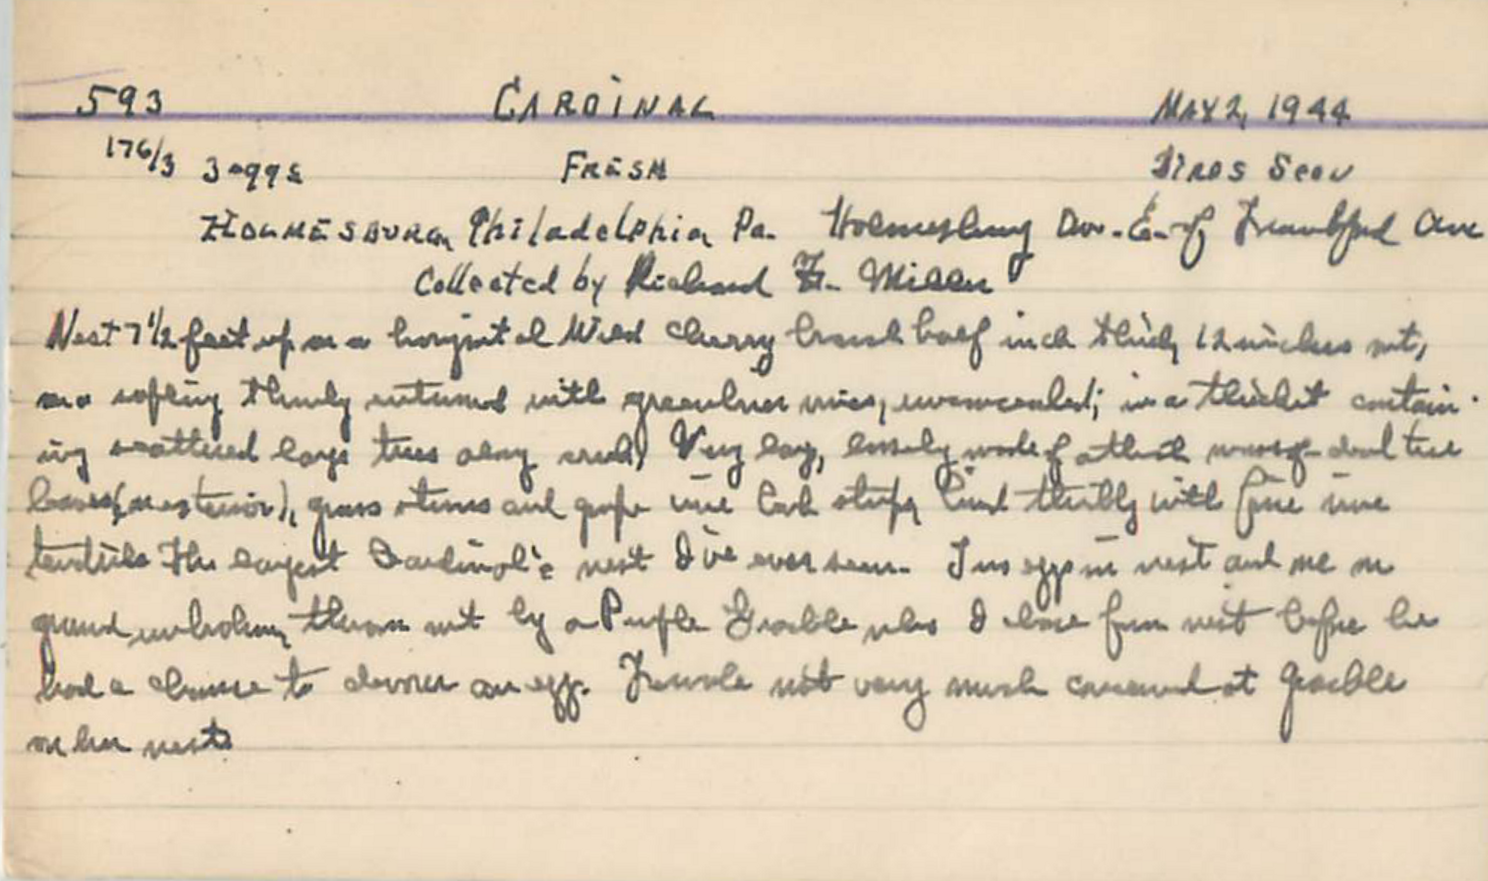 593 CARDINAL MAY 2, 1944
176/3 3 eggs FRESH BIRDS Seen
HOLMESBURG, Philadelphia Pa. Holmesburg Ave. E. of Frankford Ave
Collected by Richard F. Miller
Nest 7 1/2 feet up on a horizontal Wild cherry branch half inch thick, 12 inches out,
on a sapling thinly entwined with greenbrier vines, unconcealed; in a thicket contain-
ing scattered large trees along creek. Very large, loosely made of a thick mass of dead tree
leaves (on exterior), grass stems and grape vine bark strips, lined thickly with fine vine
tendrils. The largest Cardinal's nest I've ever seen. Two eggs in nest and one on
ground unbroken, thrown out by a Purple Grackle who I chase from nest before he
had a chance to devour an egg. Female not very much concerned at Grackle
on her nest.